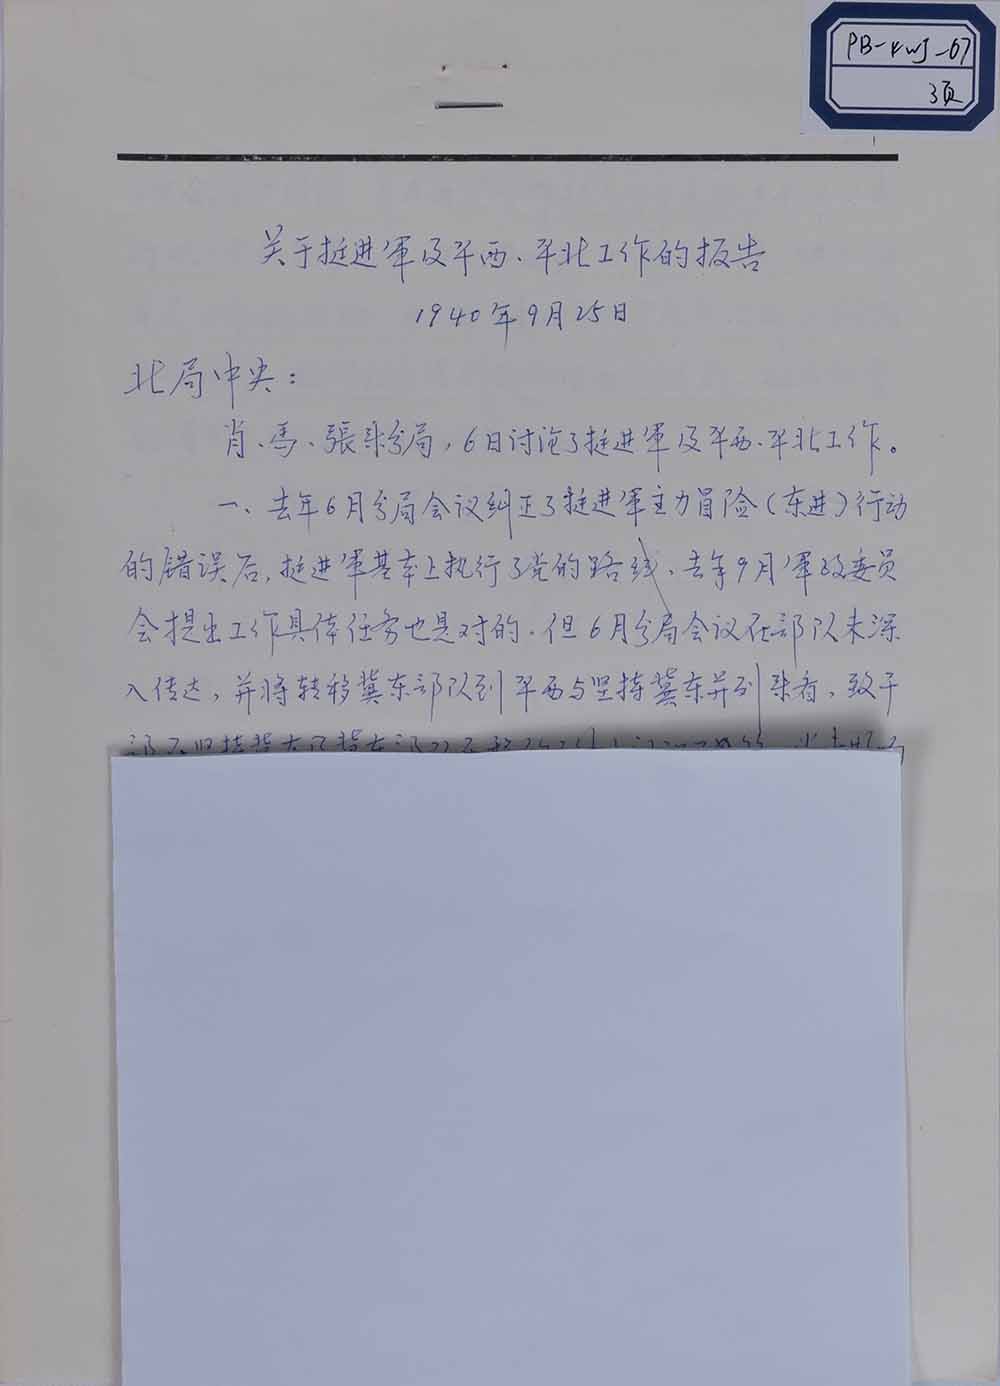 PB-4WJ-67
3页
1
关于挺进軍及平西、平北工作的报告
1940年9月25日
北局中央：
肖、馬、張来分局，6日讨论了挺进軍及平西、平北工作。
一、去年6月分局会议纠正了挺进軍主力冒险（东进）行动
的错误后，挺进軍基本上执行了党的路线、去年9月軍政委员
会提出工作具体任务也是对的．但6月分局会议在部队未深
入传达，并将转移冀东部队到平西与坚持冀东并列来看，致干